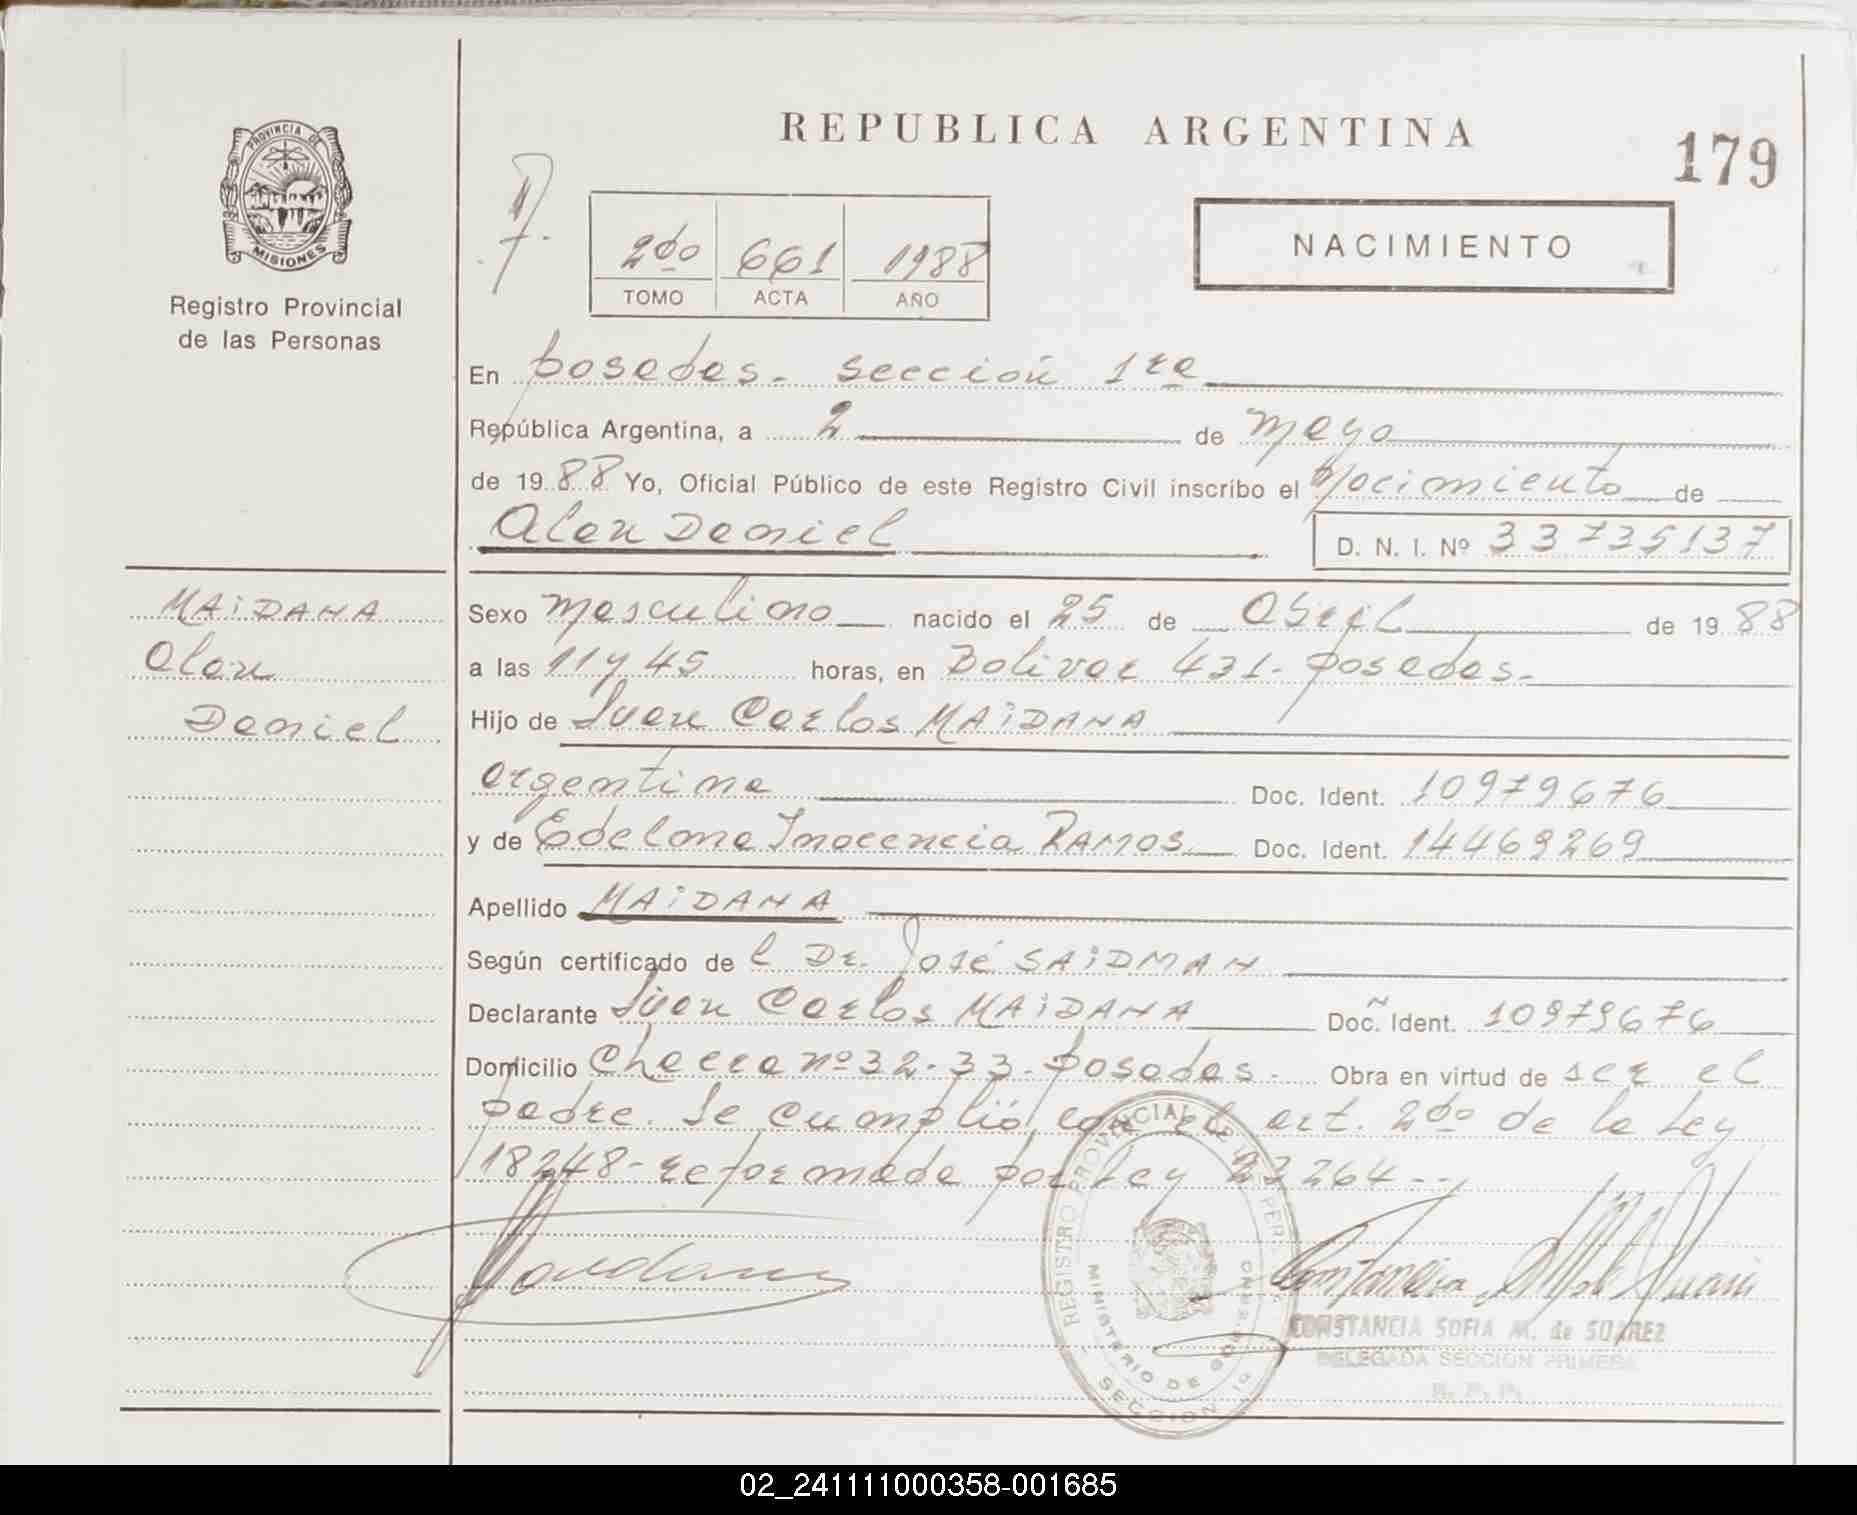 REPUBLICA ARGENTINA
179
PROVINCIA DE
MISIONES
Registro Provincial
de las Personas
2do 661 1988
TOMO ACTA AÑO
NACIMIENTO
En posadas. sección 1ra
República Argentina, a 2 de mayo
de 1988 Yo, Oficial Público de este Registro Civil inscribo el Nacimiento de
Alan Daniel
D. N. I. Nº 33735137
MAiDANA
Alan
Daniel
Sexo masculino nacido el 25 de Abril de 1988
a las 11 y 45 horas, en Bolivar 431- posadas.
Hijo de Juan Carlos MAiDANA
argentina Doc. Ident. 10979676
y de Edelma Inocencia RAMOS Doc. Ident. 14469269
Apellido MAiDANA
Según certificado de l Dr. José SAiDMAN
Declarante Juan Carlos MAiDANA Doc. Ident. 10979676
Domicilio Chacra nº 32-33-posadas. Obra en virtud de ser el
padre. Se cumplió con el art. 2do de la Ley
18248-reformada por Ley 23264--
REGISTRO PROVINCIAL DE LAS PERSONAS
MINISTERIO DE GOBIERNO
SECCION
CONSTANCIA SOFIA M. de SUAREZ
DELEGADA SECCION PRIMERA
R. P. P.
02_241111000358-001685